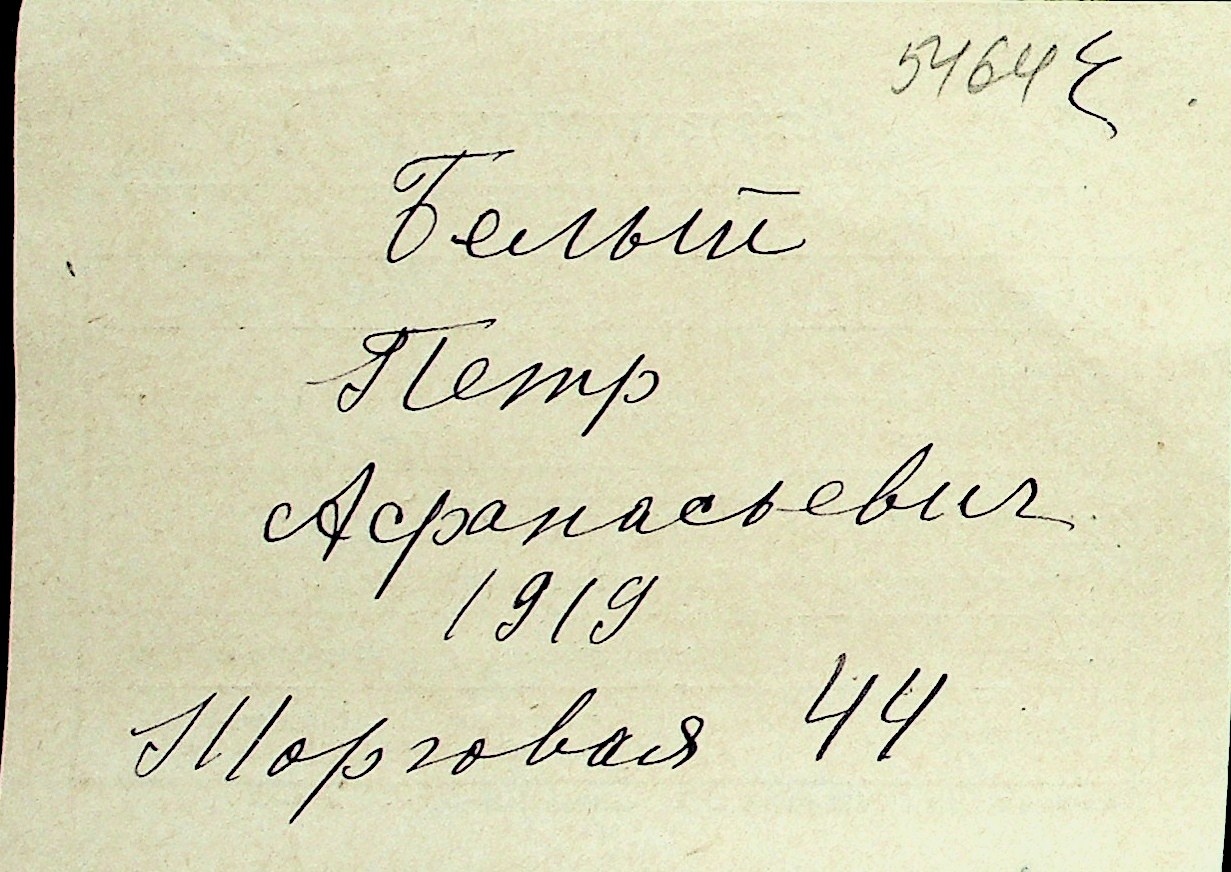 5464
Белый
Петр
Афанасьевич
1919
Торговая 44